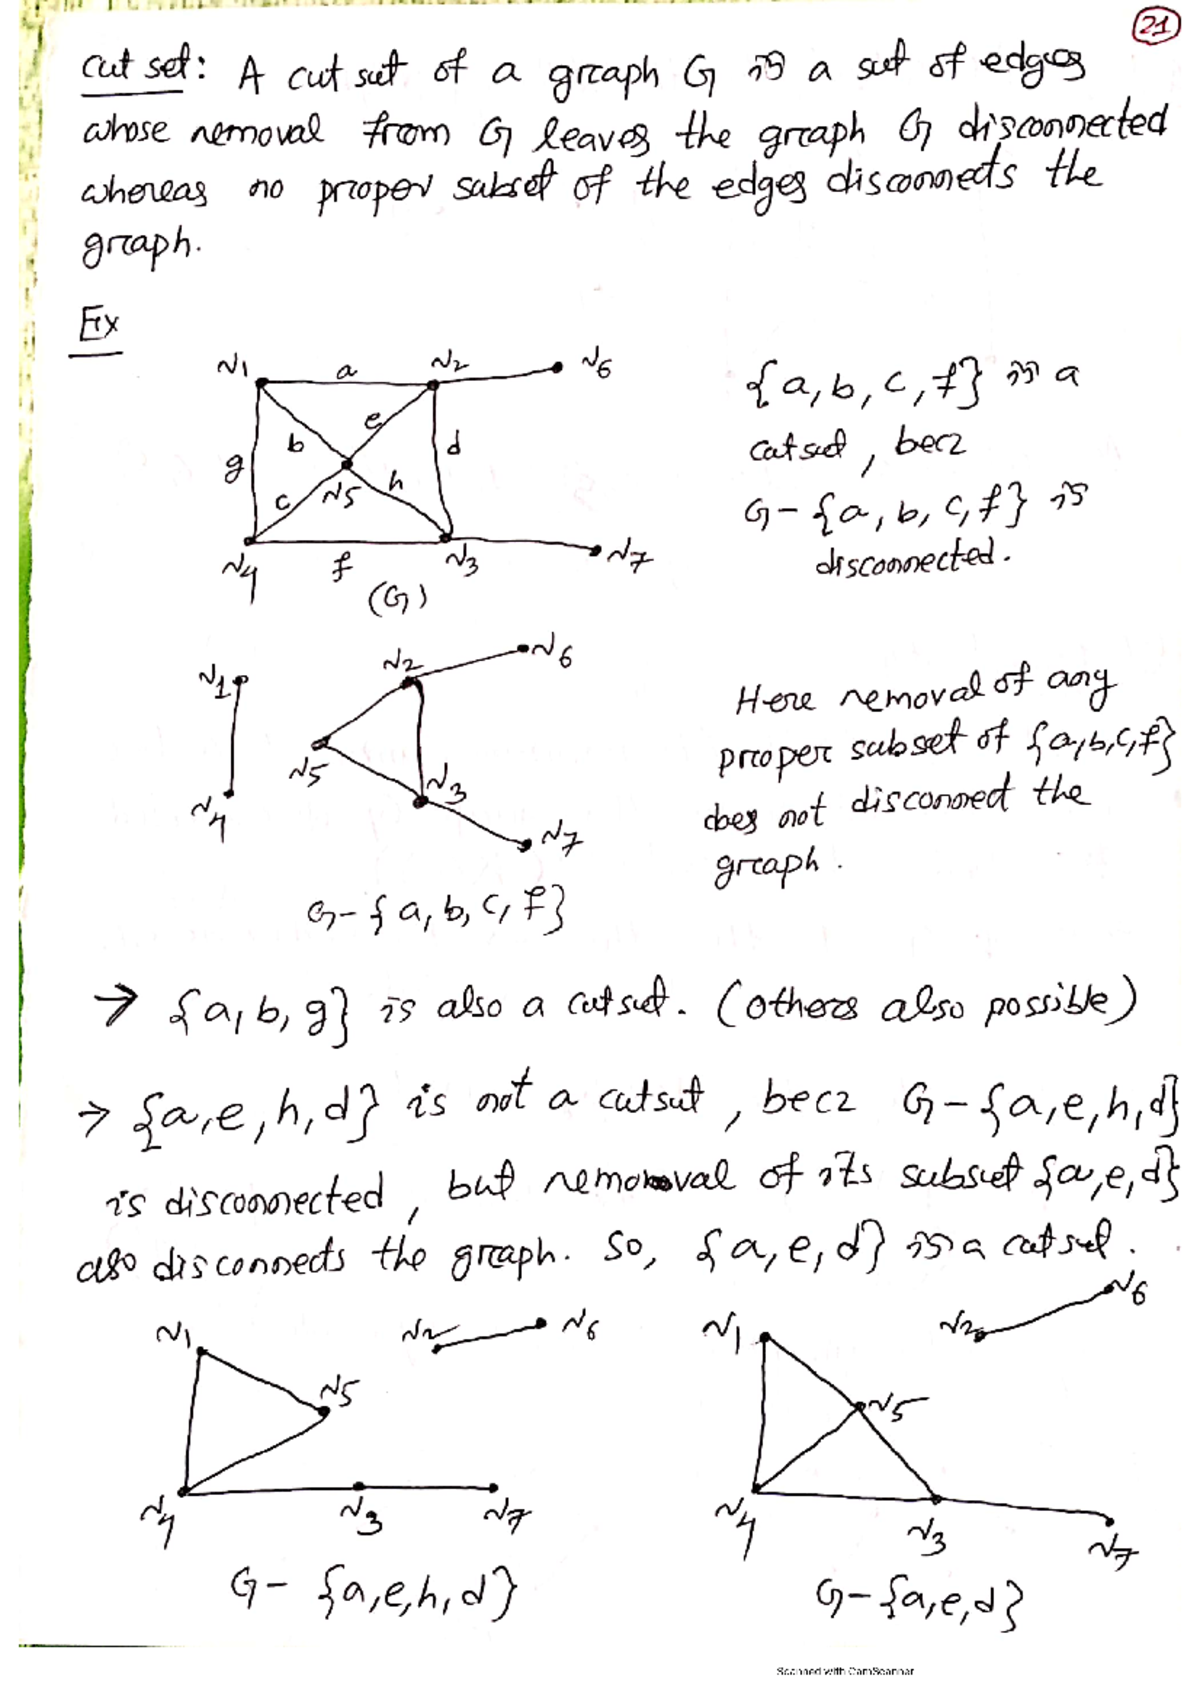 21
Cut set: A cut set of a graph G is a set of edges
whose removal from G leaves the graph G disconnected
whereas no proper subset of the edges disconnects the
graph.
Ex
v1 a v2 v6
g b e d
c v5 h
v4 f v3 v7
(G)
{a, b, c, f} is a
cutset, becz
G - {a, b, c, f} is
disconnected.
v1 v2 v6
v5 v3
v4 v7
G - {a, b, c, f}
Here removal of any
proper subset of {a, b, c, f}
does not disconnect the
graph.
→ {a, b, g} is also a cutset. (others also possible)
→ {a, e, h, d} is not a cutset, becz G - {a, e, h, d}
is disconnected, but removal of its subset {a, e, d}
also disconnects the graph. So, {a, e, d} is a cutset.
v1 v2 v6
v5
v4 v3 v7
G - {a, e, h, d}
v1 v2 v6
v5
v4 v3 v7
G - {a, e, d}
Scanned with CamScanner